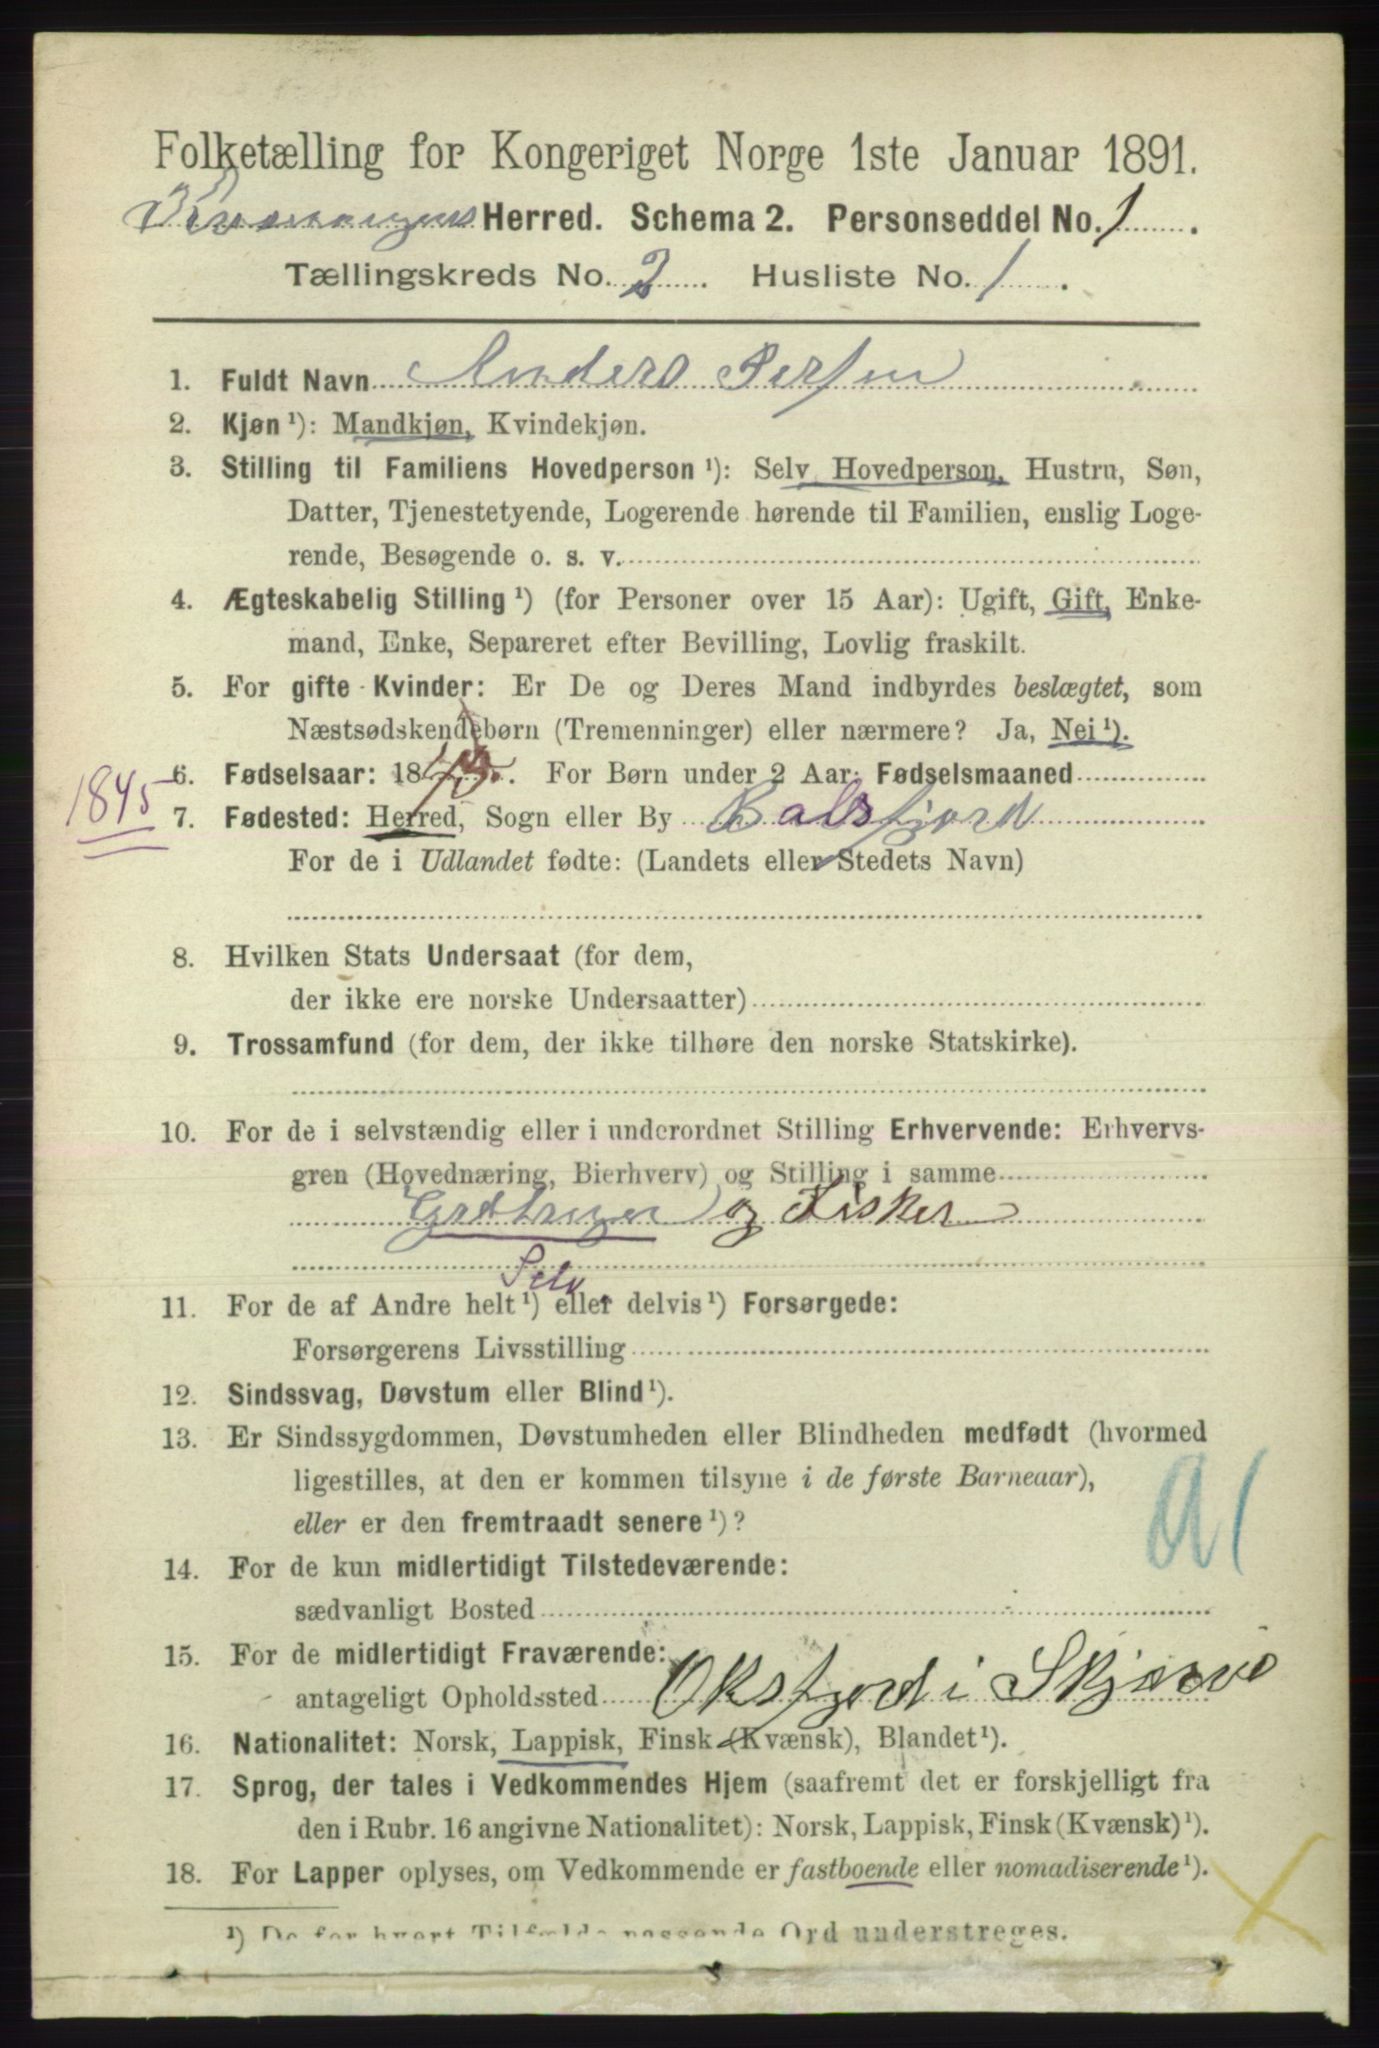 Folketælling for Kongeriget Norge 1ste Januar 1891.
Kvænangens Herred. Schema 2. Personseddel No. 1.
Tællingskreds No. 2. Husliste No. 1.
1. Fuldt Navn Anders Persen
2. Kjøn ¹): Mandkjøn, Kvindekjøn.
3. Stilling til Familiens Hovedperson ¹): Selv Hovedperson, Hustru, Søn,
Datter, Tjenestetyende, Logerende hørende til Familien, enslig Loge-
rende, Besøgende o. s. v.
4. Ægteskabelig Stilling ¹) (for Personer over 15 Aar): Ugift, Gift, Enke-
mand, Enke, Separeret efter Bevilling, Lovlig fraskilt.
5. For gifte Kvinder: Er De og Deres Mand indbyrdes beslægtet, som
Næstsødskendebørn (Tremenninger) eller nærmere? Ja, Nei ¹).
6. Fødselsaar: 1845. For Børn under 2 Aar: Fødselsmaaned
1845
7. Fødested: Herred, Sogn eller By Balsfjord
For de i Udlandet fødte: (Landets eller Stedets Navn)
8. Hvilken Stats Undersaat (for dem,
der ikke ere norske Undersaatter)
9. Trossamfund (for dem, der ikke tilhøre den norske Statskirke).
10. For de i selvstændig eller i underordnet Stilling Erhvervende: Erhvervs-
gren (Hovednæring, Bierhverv) og Stilling i samme
og Fisker
Selv
11. For de af Andre helt ¹) eller delvis ¹) Forsørgede:
Forsørgerens Livsstilling
12. Sindssvag, Døvstum eller Blind ¹).
13. Er Sindssygdommen, Døvstumheden eller Blindheden medfødt (hvormed
ligestilles, at den er kommen tilsyne i de første Barneaar),
eller er den fremtraadt senere ¹)?
a1
14. For de kun midlertidigt Tilstedeværende:
sædvanligt Bosted
15. For de midlertidigt Fraværende:
antageligt Opholdssted Oksfjord i Skjærvø
16. Nationalitet: Norsk, Lappisk, Finsk (Kvænsk), Blandet ¹).
17. Sprog, der tales i Vedkommendes Hjem (saafremt det er forskjelligt fra
den i Rubr. 16 angivne Nationalitet): Norsk, Lappisk, Finsk (Kvænsk) ¹).
18. For Lapper oplyses, om Vedkommende er fastboende eller nomadiserende ¹).
¹) De for hvert Tilfælde passende Ord understreges.